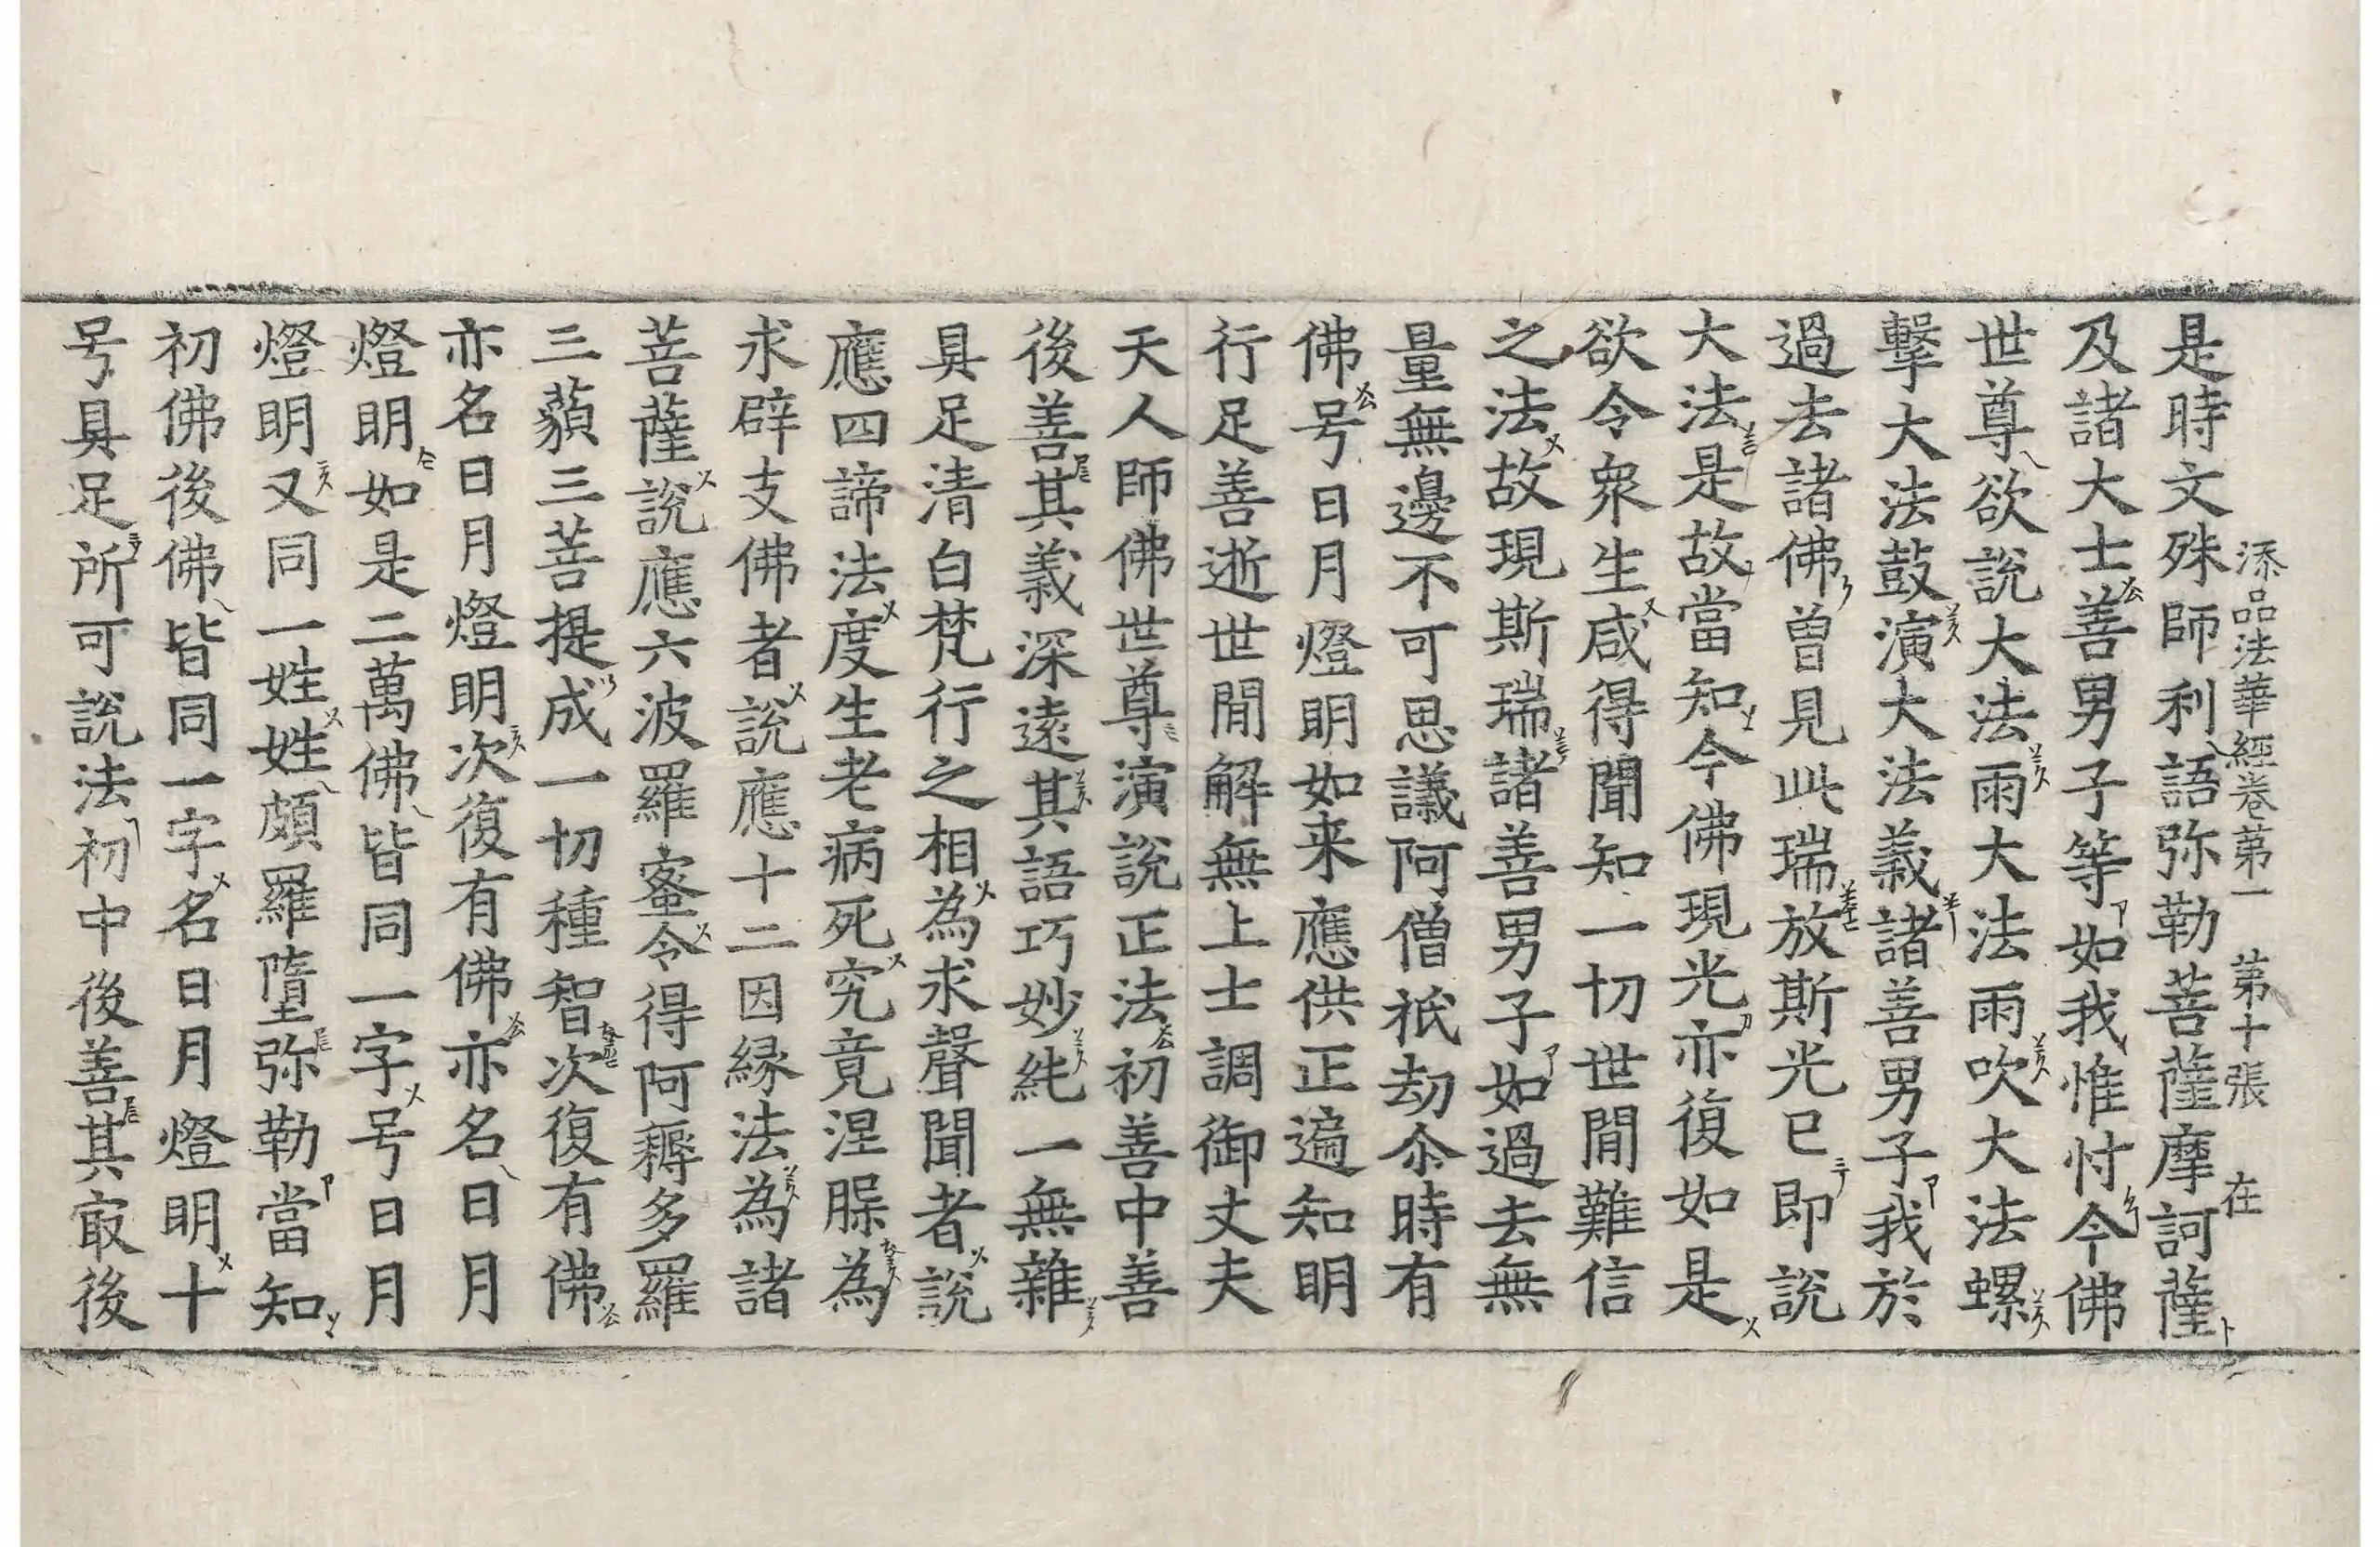 添品法華經卷第一　第十張　在
是時文殊師利語弥勒菩薩摩訶薩
及諸大士善男子等如我惟忖今佛
世尊欲說大法雨大法雨吹大法螺
擊大法鼓演大法義諸善男子我於
過去諸佛曾見此瑞放斯光已即說
大法是故當知今佛現光亦復如是
欲令衆生咸得聞知一切世間難信
之法故現斯瑞諸善男子如過去無
量無邊不可思議阿僧祇劫尒時有
佛号日月燈明如来應供正遍知明
行足善逝世間解無上士調御丈夫
天人師佛世尊演說正法初善中善
後善其義深遠其語巧妙純一無雜
具足清白梵行之相為求聲聞者說
應四諦法度生老病死究竟涅槃為
求辟支佛者說應十二因緣法為諸
菩薩說應六波羅蜜令得阿耨多羅
三藐三菩提成一切種智次復有佛
亦名日月燈明次復有佛亦名日月
燈明如是二萬佛皆同一字号日月
燈明又同一姓姓頗羅墮弥勒當知
初佛後佛皆同一字名日月燈明十
号具足所可說法初中後善其㝡後